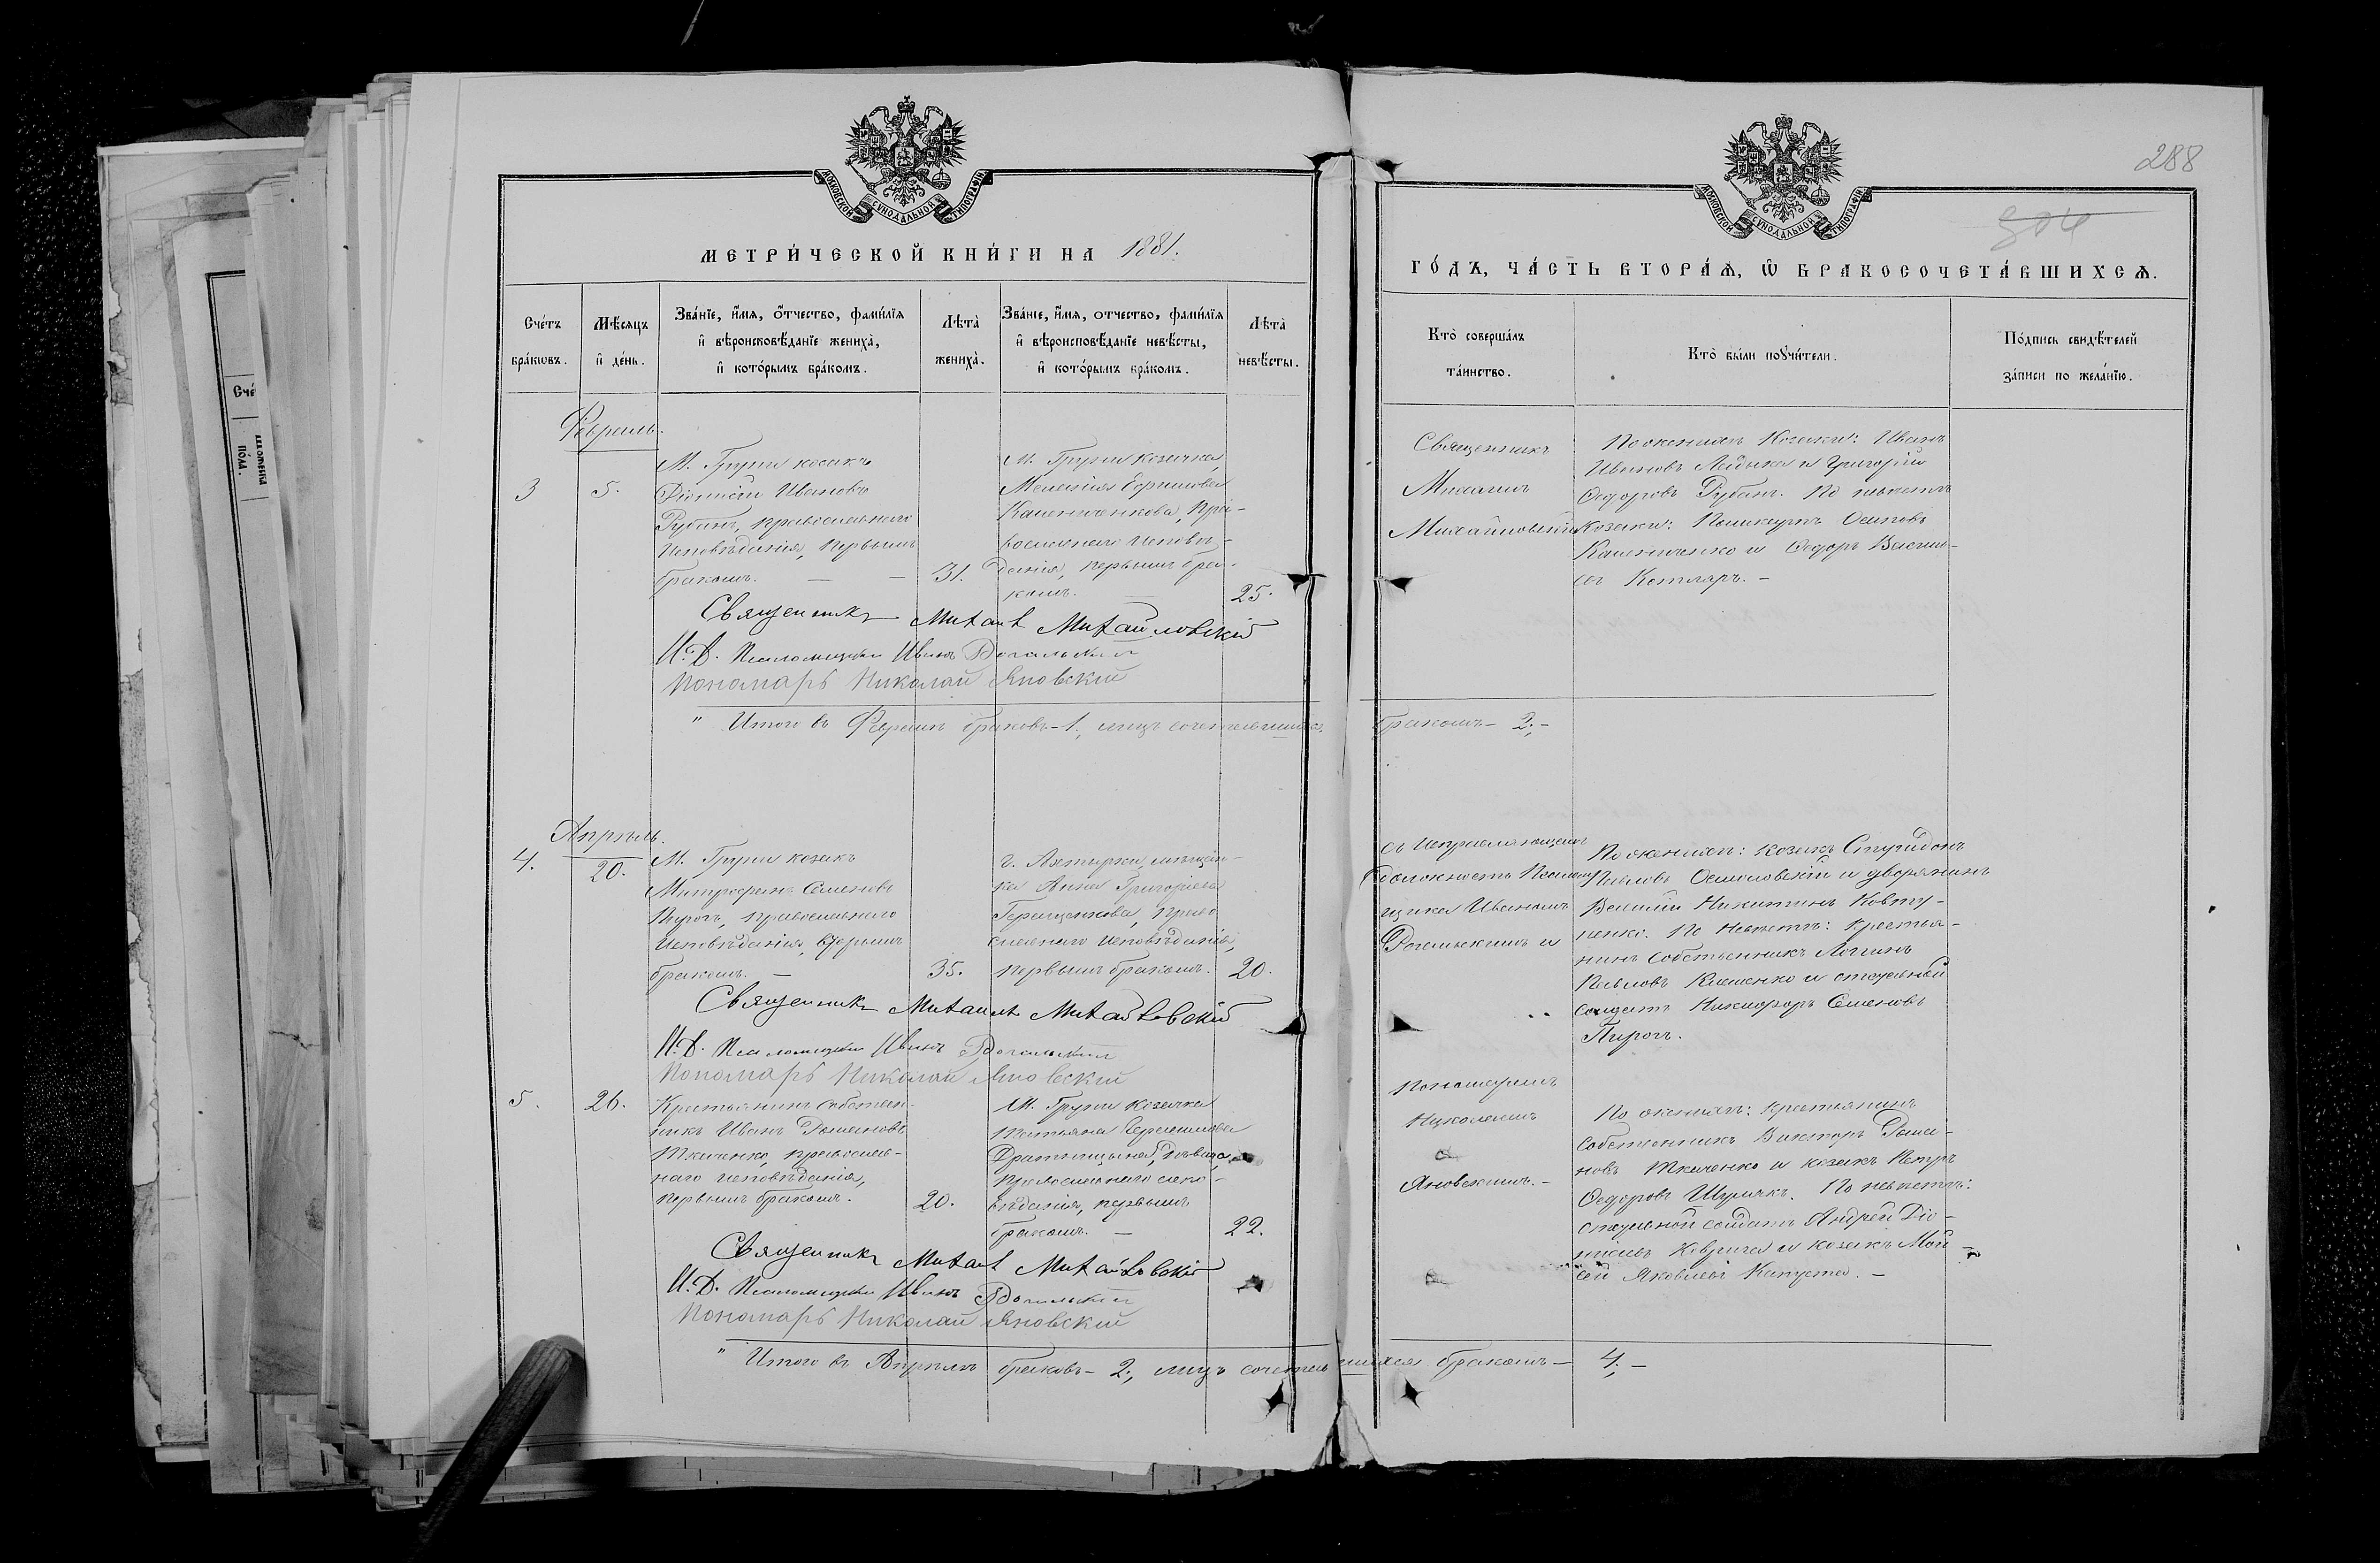 МОСКОВСКОЙ СѴНОДАЛЬНОЙ ТИПОГРАФІИ
МЕТРИ́ЧЕСКОЙ КНИ́ГИ НА 1881.
Сче́тъ бра́кѡвъ.
Мѣ́сяцъ и҆ де́нь.
Зва́нїе, и҆́мѧ, ѻ҆́тчество, фами́лїѧ
и҆ вѣроисповѣ́данїе жениха̀,
и҆ кото́рымъ бра́комъ.
Лѣта̀ жениха̀.
Зва́нїе, и҆́мѧ, отчество, фами́лїѧ
и҆ вѣроисповѣ́данїе невѣ́сты,
и҆ кото́рымъ бра́комъ.
Лѣта̀ невѣ́сты.
Февраль.
3
5.
М. Груни козакъ
Діонисій Ивановъ
Рубанъ, православнаго
исповѣданія, первымъ
бракомъ. — —
31.
М. Груни козачка
Калениченкова, пра-
вославнаго исповѣ-
данія, первымъ бра-
комъ. —
25.
Священникъ Михаилъ Михайловскій
И. Д. Псаломщика Иванъ
Пономарь Николай Яновскій
" Итого въ Февралѣ браковъ – 1, лицъ сочетавшихся
Апрѣль.
4.
20.
М. Груни козакъ
Митрофанъ Семеновъ
Пирогъ, православнаго
исповѣданія, вторымъ
бракомъ. —
35.
г. Ахтырки мѣщан-
ка Анна Григорьева
Геращенкова, право
славнаго исповѣданія,
первымъ бракомъ.
20.
Священникъ Михаилъ Михайловскій
И. Д. Псаломщика Иванъ
Пономарь Николай Яновскій
5.
26.
Крестьянинъ собствен-
никъ Иванъ Романовъ
Ткаченко, православ-
наго исповѣданія,
первымъ бракомъ.
20.
М. Груни козачка
Татьяна Герасимова
дѣвица,
православнаго испо-
вѣданія, первымъ
бракомъ. —
22.
Священникъ Михаилъ Михайловскій
И. Д. Псаломщика Иванъ
Пономарь Николай Яновскій
" Итого въ Апрѣлѣ браковъ – 2, лицъ сочетавшихся бракомъ – 4. –
МОСКОВСКОЙ СѴНОДАЛЬНОЙ ТИПОГРАФІИ
288
ГО́ДЪ, ЧА́СТЬ ВТОРА́Ѧ, Ѽ БРАКОСОЧЕТА́ВШИХСѦ.
Кто̀ соверша́лъ
та́инство.
Кто̀ бы́ли порꙋчи́тели.
По́дпись свидѣ́телей
за́писи по жела́нїю.
Священникъ
Михаилъ
Михайловскій
По женихѣ козаки: Иванъ
Ивановъ и Григорій
Ѳедоровъ Рубанъ. По невѣстѣ
козаки: Поликарпъ Осиповъ
Калениченко и Ѳедоръ Василь-
евъ Котляръ. –
бракомъ – 2. –
съ исправляющимъ
должность Псалом
щика Иваномъ
и
По женихѣ: козакъ Спиридонъ
Павловъ и дворянинъ
Василій Никитинъ Ковту-
ненко. По невѣстѣ: крестья-
нинъ собственникъ Логинъ
Павловъ и отставной
солдатъ Никифоръ Семеновъ
Пирогъ.
Пономаремъ
Николаемъ
Яновскимъ. –
По женихѣ: крестьянинъ
собственникъ Викторъ Рома-
новъ Ткаченко и козакъ Петръ
Ѳедоровъ Шулякъ. По невѣстѣ:
отставной солдатъ Андрей Діо-
нисіевъ Коврига и козакъ Мои
сей Яковлевъ Капуста. –